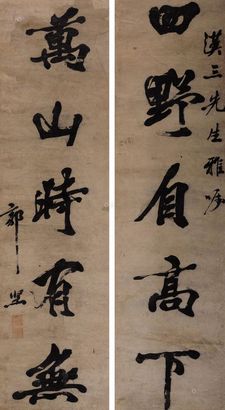 漢三先生雅屬
四野自高下
萬山時有無
郭